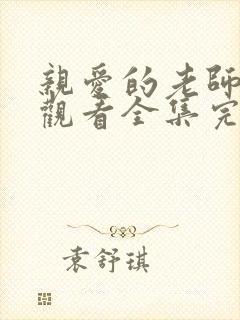 親愛的老師
觀看全集完
袁舒琪